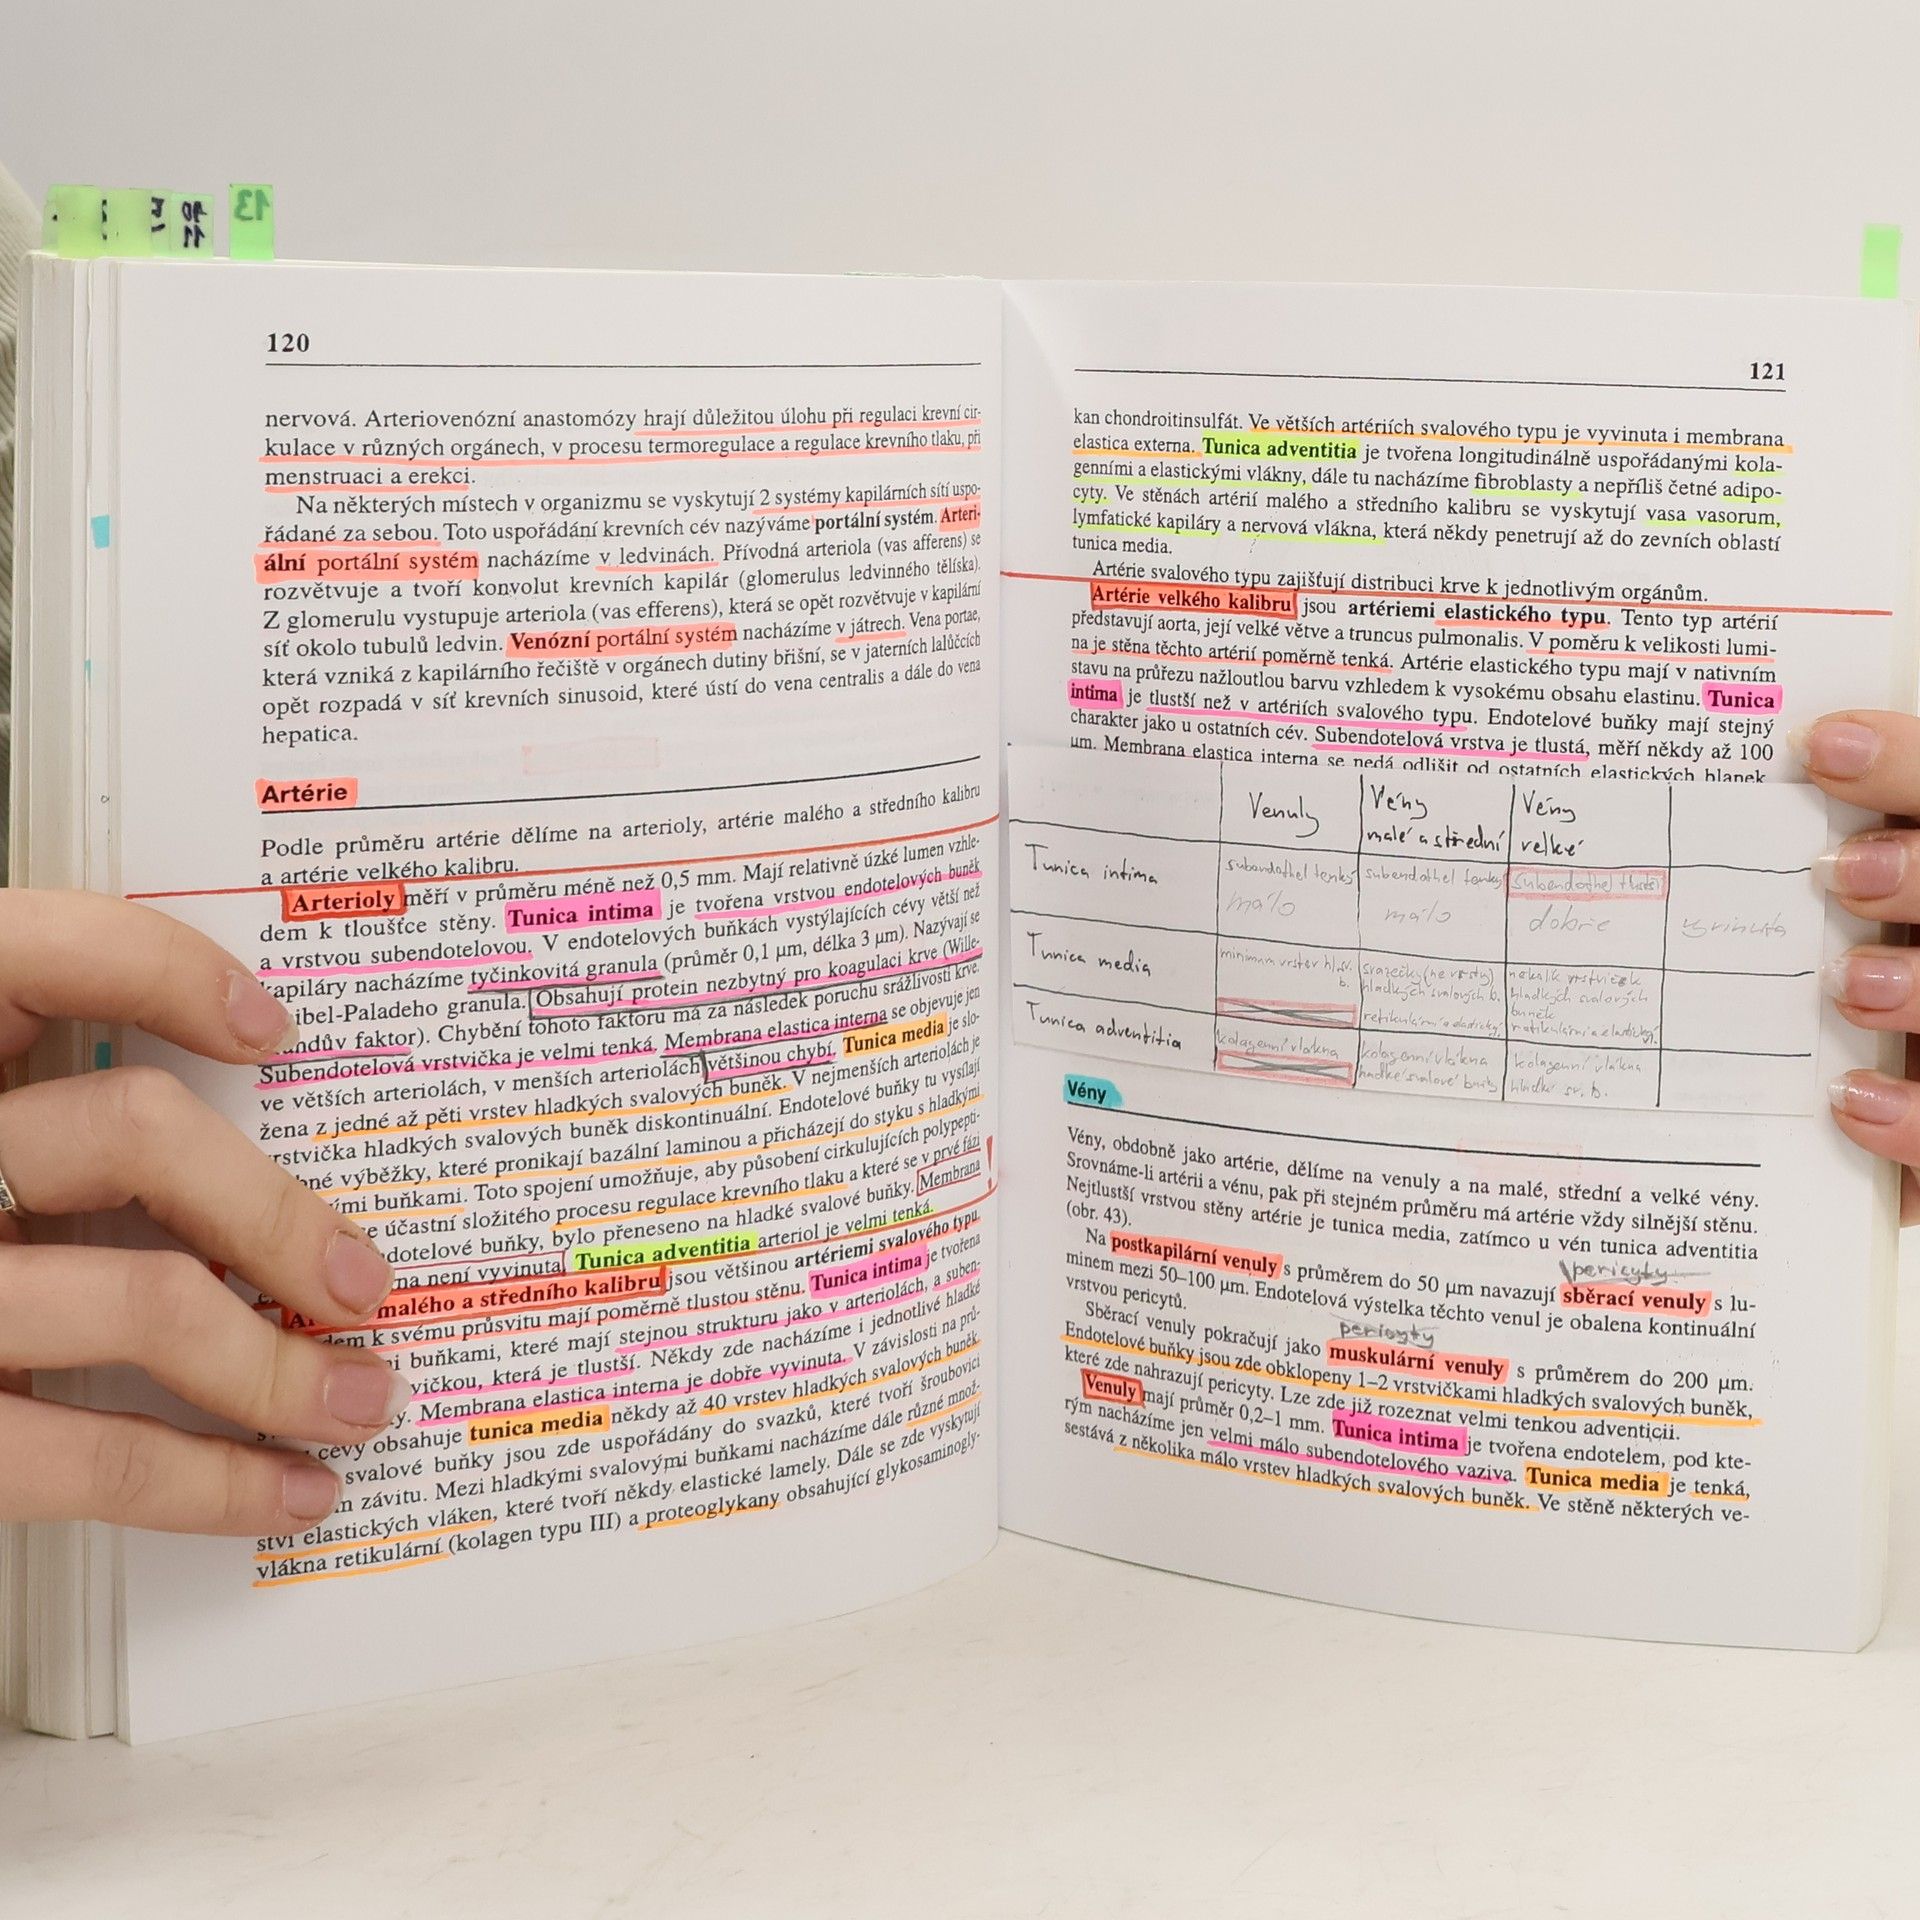 13
10
11
120
nervová. Arteriovenózní anastomózy hrají důležitou úlohu při regulaci krevní cir-
kulace v různých orgánech, v procesu termoregulace a regulace krevního tlaku, při
menstruaci a erekci.
Na některých místech v organizmu se vyskytují 2 systémy kapilárních sítí uspo-
řádané za sebou. Toto uspořádání krevních cév nazýváme portální systém. Arteri-
ální portální systém nacházíme v ledvinách. Přívodná arteriola (vas afferens) se
rozvětvuje a tvoří konvolut krevních kapilár (glomerulus ledvinného tělíska).
Z glomerulu vystupuje arteriola (vas efferens), která se opět rozvětvuje v kapilární
síť okolo tubulů ledvin. Venózní portální systém nacházíme v játrech. Vena portae,
která vzniká z kapilárního řečiště v orgánech dutiny břišní, se v jaterních lalůčcích
opět rozpadá v síť krevních sinusoid, které ústí do vena centralis a dále do vena
hepatica.
Artérie
Podle průměru artérie dělíme na arterioly, artérie malého a středního kalibru
a artérie velkého kalibru.
Arterioly měří v průměru méně než 0,5 mm. Mají relativně úzké lumen vzhle-
dem k tloušťce stěny. Tunica intima je tvořena vrstvou endotelových buněk
a vrstvou subendotelovou. V endotelových buňkách vystýlajících cévy větší než
kapiláry nacházíme tyčinkovitá granula (průměr 0,1 µm, délka 3 µm). Nazývají se
ibel-Paladeho granula. Obsahují protein nezbytný pro koagulaci krve (Wille-
ndův faktor). Chybění tohoto faktoru má za následek poruchu srážlivosti krve.
Subendotelová vrstvička je velmi tenká. Membrana elastica interna se objevuje jen
ve větších arteriolách, v menších arteriolách většinou chybí. Tunica media je slo-
žena z jedné až pěti vrstev hladkých svalových buněk. V nejmenších arteriolách je
rstvička hladkých svalových buněk diskontinuální. Endotelové buňky tu vysílají
né výběžky, které pronikají bazální laminou a přicházejí do styku s hladkými
ými buňkami. Toto spojení umožňuje, aby působení cirkulujících polypepti-
e účastní složitého procesu regulace krevního tlaku a které se v prvé fázi
dotelové buňky, bylo přeneseno na hladké svalové buňky. Membrana
na není vyvinuta. Tunica adventitia arteriol je velmi tenká.
malého a středního kalibru jsou většinou artériemi svalového typu.
dem k svému průsvitu mají poměrně tlustou stěnu. Tunica intima je tvořena
i buňkami, které mají stejnou strukturu jako v arteriolách, a suben-
vičkou, která je tlustší. Někdy zde nacházíme i jednotlivé hladké
y. Membrana elastica interna je dobře vyvinuta. V závislosti na prů-
cévy obsahuje tunica media někdy až 40 vrstev hladkých svalových buněk.
svalové buňky jsou zde uspořádány do svazků, které tvoří šroubovici
m závitu. Mezi hladkými svalovými buňkami nacházíme dále různé množ-
ství elastických vláken, které tvoří někdy elastické lamely. Dále se zde vyskytují
vlákna retikulární (kolagen typu III) a proteoglykany obsahující glykosaminogly-
121
kan chondroitinsulfát. Ve větších artériích svalového typu je vyvinuta i membrana
elastica externa. Tunica adventitia je tvořena longitudinálně uspořádanými kola-
genními a elastickými vlákny, dále tu nacházíme fibroblasty a nepříliš četné adipo-
cyty. Ve stěnách artérií malého a středního kalibru se vyskytují vasa vasorum,
lymfatické kapiláry a nervová vlákna, která někdy penetrují až do zevních oblastí
tunica media.
Artérie svalového typu zajišťují distribuci krve k jednotlivým orgánům.
Artérie velkého kalibru jsou artériemi elastického typu. Tento typ artérií
představují aorta, její velké větve a truncus pulmonalis. V poměru k velikosti lumi-
na je stěna těchto artérií poměrně tenká. Artérie elastického typu mají v nativním
stavu na průřezu nažloutlou barvu vzhledem k vysokému obsahu elastinu. Tunica
intima je tlustší než v artériích svalového typu. Endotelové buňky mají stejný
charakter jako u ostatních cév. Subendotelová vrstva je tlustá, měří někdy až 100
µm. Membrana elastica interna se nedá odlišit od ostatních elastických blanek
Venuly
Vény
malé a střední
Vény
velké
Tunica intima
subendothel tenký
málo
subendothel tenký
málo
subendothel tlustší
dobře
vyvinuta
Tunica media
minimum vrstev hl. sv.
b.
svazečky (ne vrstvy)
hladkých svalových b.
retikulární a elastický
několik vrstviček
hladkých svalových
buněk
retikulární a elastický
Tunica adventitia
kolagenní vlákna
kolagenní vlákna
hladké svalové buňky
kolagenní vlákna
hladké sv. b.
Vény
Vény, obdobně jako artérie, dělíme na venuly a na malé, střední a velké vény.
Srovnáme-li artérii a vénu, pak při stejném průměru má artérie vždy silnější stěnu.
Nejtlustší vrstvou stěny artérie je tunica media, zatímco u vén tunica adventitia
(obr. 43).
pericyty
Na postkapilární venuly s průměrem do 50 µm navazují sběrací venuly s lu-
minem mezi 50–100 µm. Endotelová výstelka těchto venul je obalena kontinuální
vrstvou pericytů.
pericyty
Sběrací venuly pokračují jako muskulární venuly s průměrem do 200 µm.
Endotelové buňky jsou zde obklopeny 1–2 vrstvičkami hladkých svalových buněk,
které zde nahrazují pericyty. Lze zde již rozeznat velmi tenkou adventicii.
Venuly mají průměr 0,2–1 mm. Tunica intima je tvořena endotelem, pod kte-
rým nacházíme jen velmi málo subendotelového vaziva. Tunica media je tenká,
sestává z několika málo vrstev hladkých svalových buněk. Ve stěně některých ve-